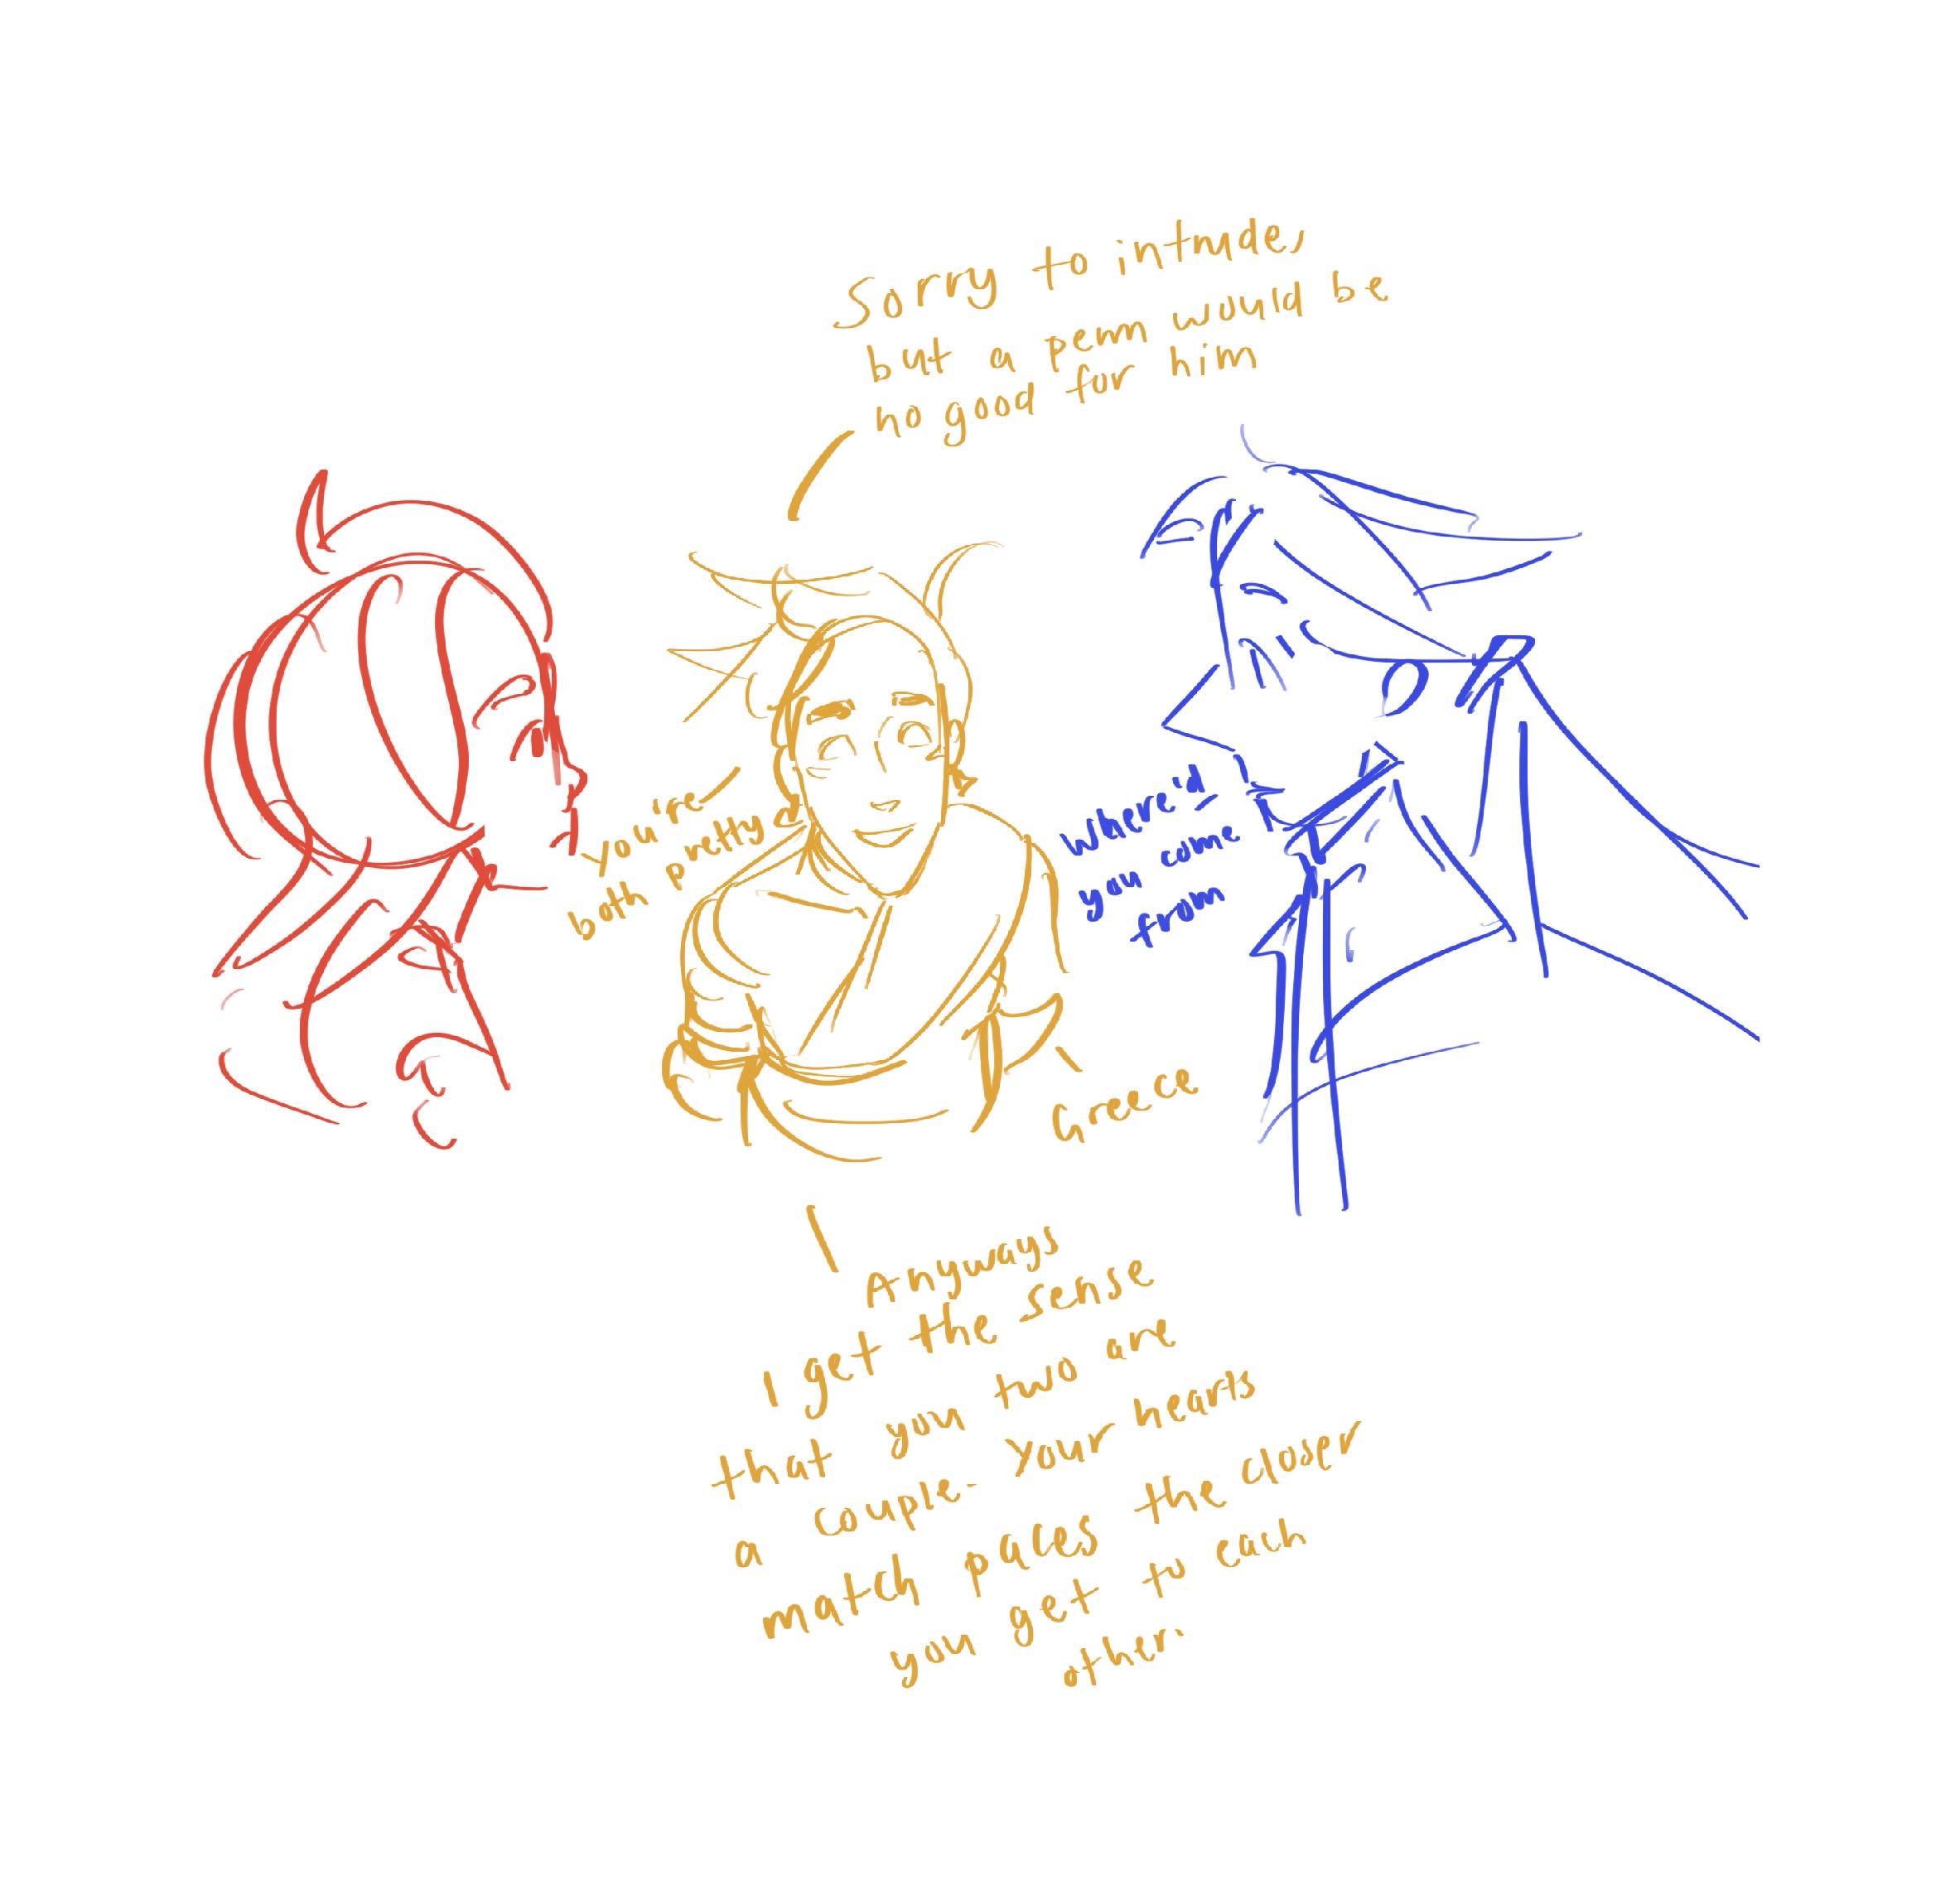 Sorry to intrude,
but a perm would be
no good for him
you're
both pretty
where'd
you come
from
Greece
Anyways
I get the sense
that you two are
a couple. Your hearts
match paces the closer
you get to each
other.